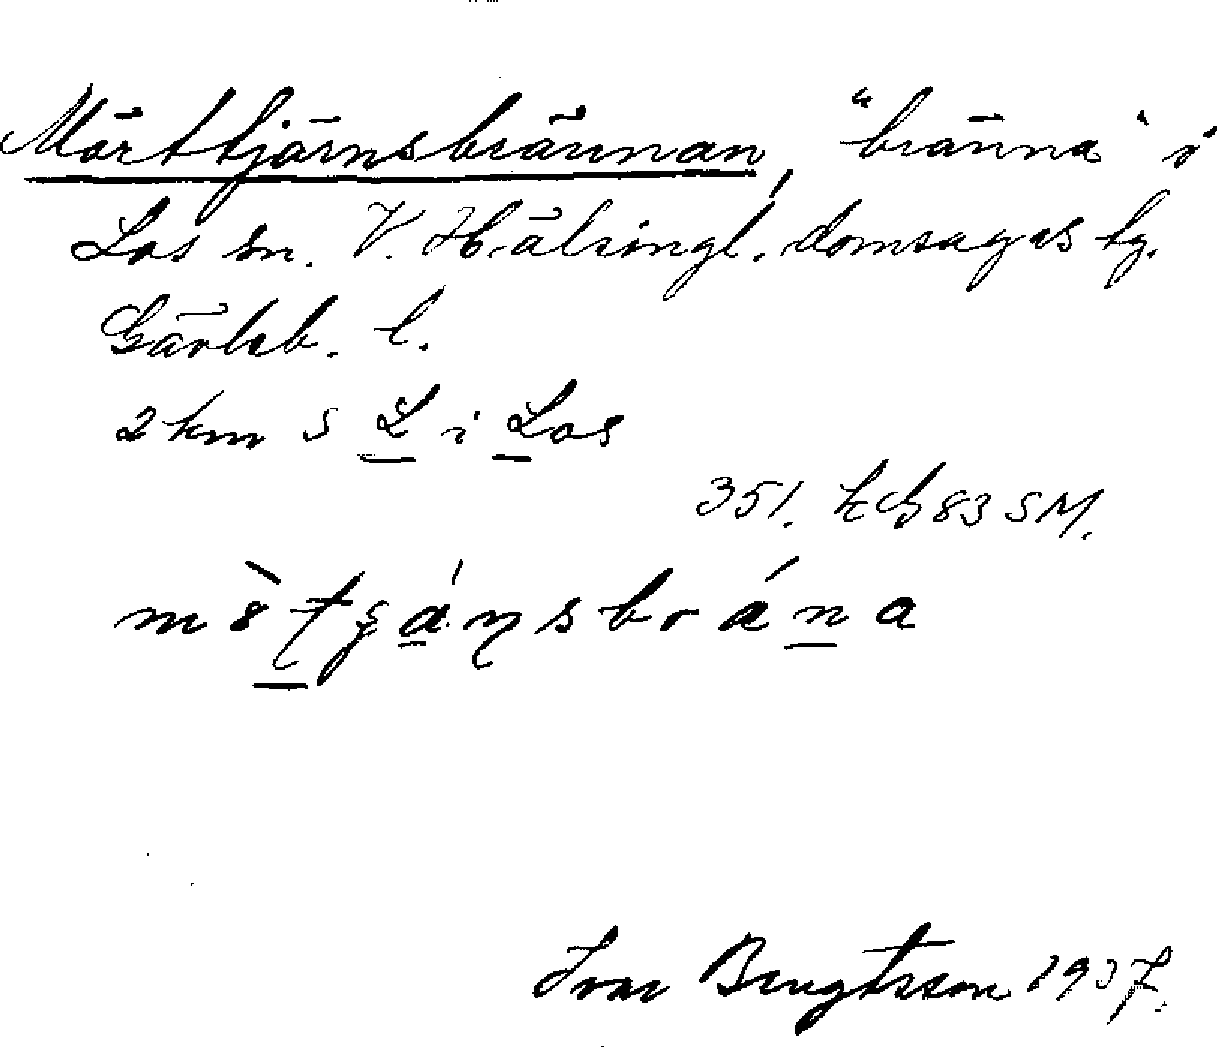 Mörttjärnsbrännan, "bränna" i
Los sn. V. Hälsingl. domsagas tg.
Gävleb. l.
2 km S L i Los
351. 83 SM.
Ivar Bengtsson 1937.